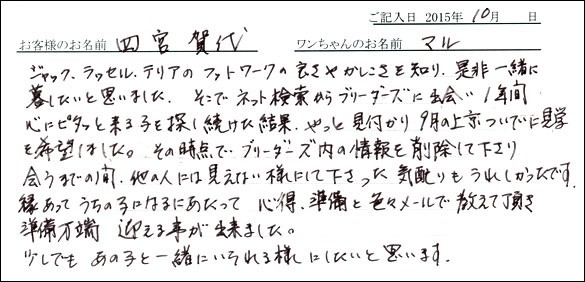 ご記入日 2015年 10月 日
お客様のお名前 四宮 賀代 ワンちゃんのお名前 マル
ジャック、ラッセル、テリアの フットワークの良さやかしこさを知り、是非一緒に
暮したいと思いました。そこで ネット検索からブリーダーズに出会い 1年間
心にピタッと来る子を探し続けた結果、やっと見付かり 9月の上京ついでに見学
を希望しました。その時点で、ブリーダーズ内の情報を削除して下さり
会うまでの間、他の人には見えない様にして下さった気配りもうれしかったです。
縁あって うちの子になるにあたって 心得、準備と色々メールで教えて頂き
準備万端 迎える事が出来ました。
少しでも あの子と一緒にいられる様にしたいと思います。